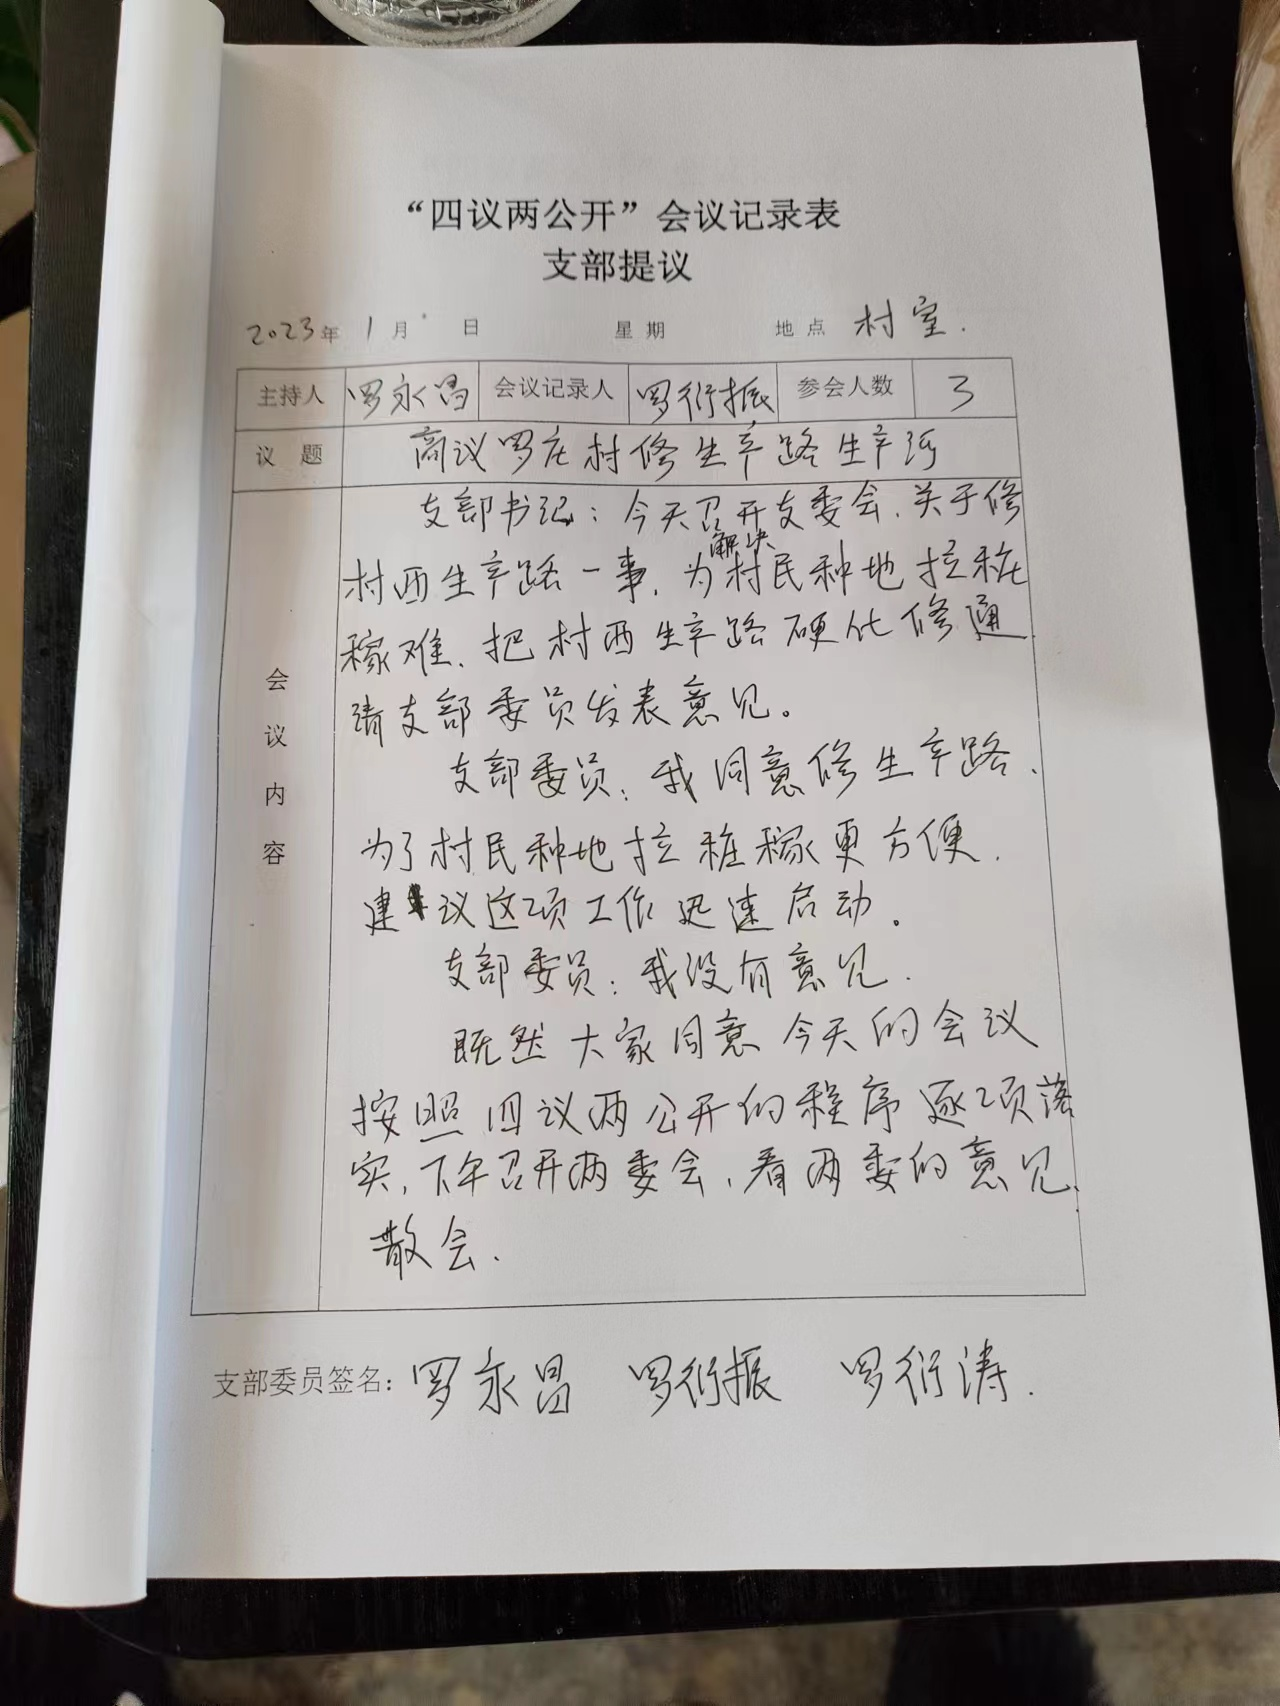 “四议两公开”会议记录表
支部提议
2023年 1月 日 星期 地点 村室.
主持人 罗永昌 会议记录人 罗衍振 参会人数 3
议题 商议罗庄村修生产路生产河
会议内容
支部书记：今天召开支委会.关于修
村西生产路一事.为解决村民种地拉庄
稼难.把村西生产路硬化修通
请支部委员发表意见。
支部委员：我同意修生产路.
为了村民种地拉庄稼更方便.
建议这项工作迅速启动。
支部委员：我没有意见.
既然大家同意今天的会议
按照四议两公开的程序逐项落
实,下午召开两委会,看两委的意见.
散会.
支部委员签名：罗永昌 罗衍振 罗衍涛.